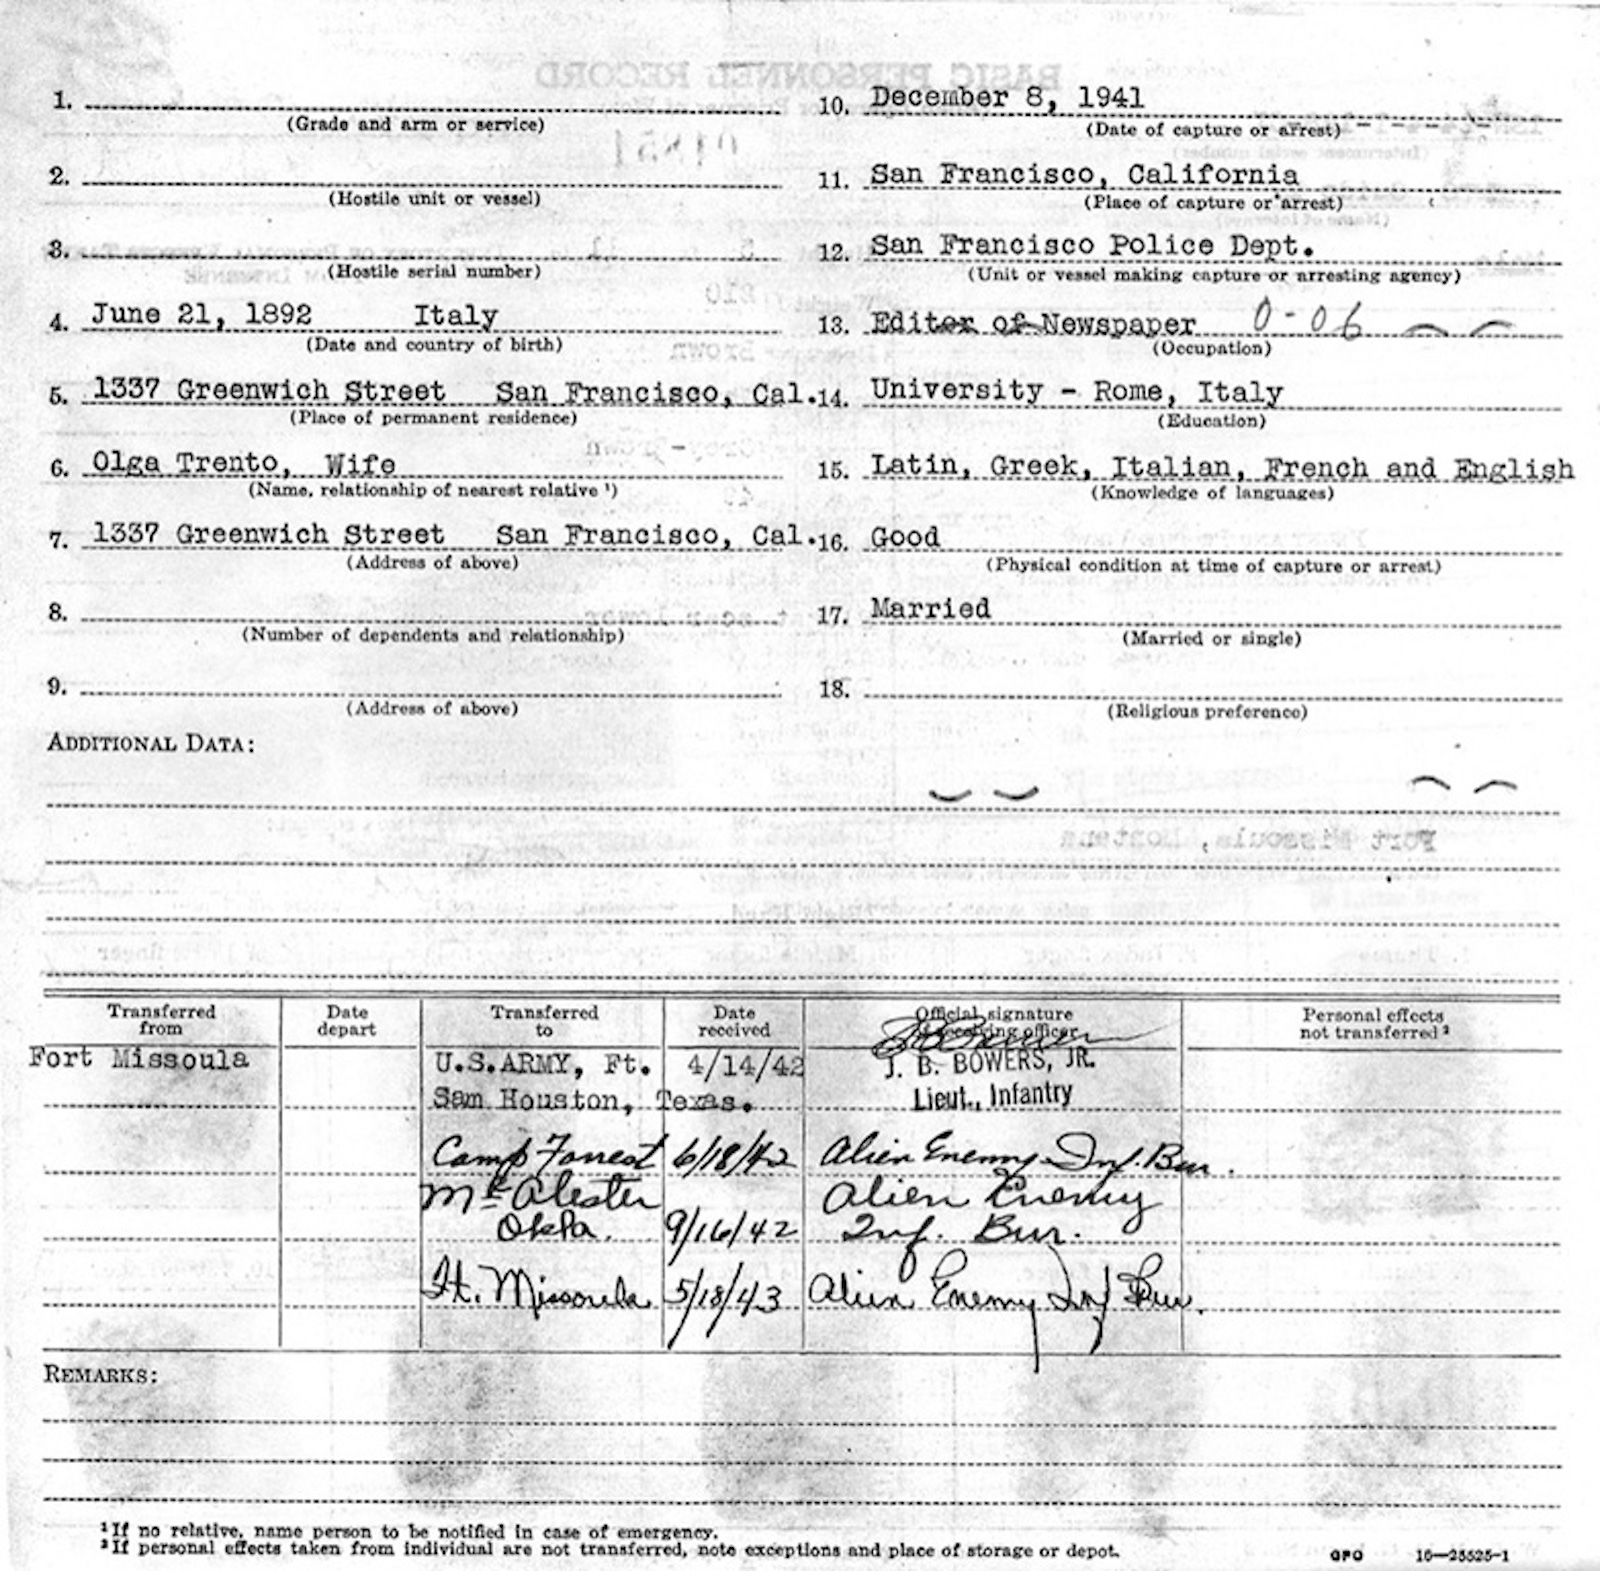 BASIC PERSONNEL RECORD
1.
(Grade and arm or service)
2.
(Hostile unit or vessel)
3.
(Hostile serial number)
4. June 21, 1892 Italy
(Date and country of birth)
5. 1337 Greenwich Street San Francisco, Cal.
(Place of permanent residence)
6. Olga Trento, Wife
(Name, relationship of nearest relative ¹)
7. 1337 Greenwich Street San Francisco, Cal.
(Address of above)
8.
(Number of dependents and relationship)
9.
(Address of above)
10. December 8, 1941
(Date of capture or arrest)
11. San Francisco, California
(Place of capture or arrest)
12. San Francisco Police Dept.
(Unit or vessel making capture or arresting agency)
13. Editor of Newspaper 0-06
(Occupation)
14. University - Rome, Italy
(Education)
15. Latin, Greek, Italian, French and English
(Knowledge of languages)
16. Good
(Physical condition at time of capture or arrest)
17. Married
(Married or single)
18.
(Religious preference)
ADDITIONAL DATA:
Fort Missoula, Montana
Transferred from Date depart Transferred to Date received Official signature of receiving officer Personal effects not transferred ²
Fort Missoula U.S.ARMY, Ft. 4/14/42 J. B. BOWERS, JR.
Sam Houston, Texas. Lieut., Infantry
Camp Forrest 6/18/42 Alien Enemy Inf. Bur.
McAlester Alien Enemy
Okla. 9/16/42 Inf. Bur.
Ft. Missoula 5/18/43 Alien Enemy Inf Bur.
REMARKS:
¹ If no relative, name person to be notified in case of emergency.
² If personal effects taken from individual are not transferred, note exceptions and place of storage or depot.
GPO 16—25525-1